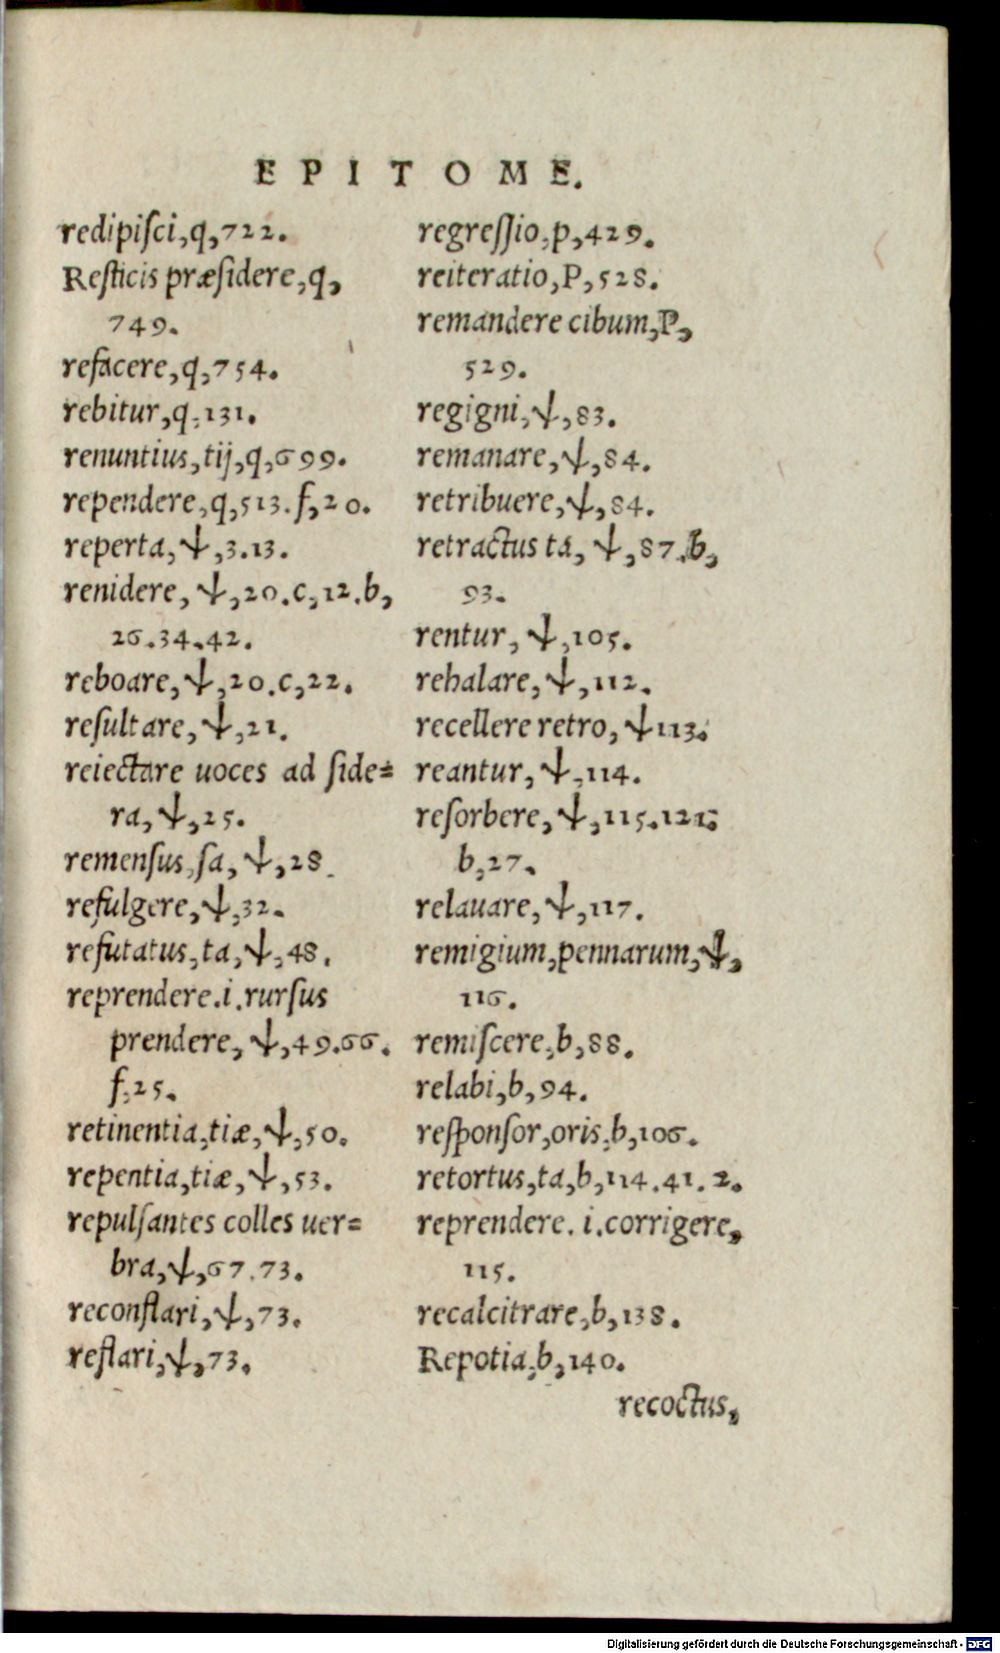 EPITOME.
redipiſci,q,722.
Reſticis præſidere,q,
749.
refacere,q,754.
rebitur,q,131.
renuntius,tij,q,699.
rependere,q,513.f,20.
reperta,ψ,3.13.
renidere, ψ,20.c,12.b,
26.34.42.
reboare,ψ,20.c,22.
reſultare,ψ,21.
reiectare uoces ad ſide=
ra,ψ,25.
remenſus,ſa,ψ,28.
refulgere,ψ,32.
refutatus,ta,ψ,48.
reprendere.i.rurſus
prendere,ψ,49.66.
f,25.
retinentia,tiæ,ψ,50.
repentia,tiæ,ψ,53.
repulſantes colles uer=
bra,ψ,67.73.
reconflari,ψ,73.
reflari,ψ,73.
regreſſio,p,429.
reiteratio,P,528.
remandere cibum,P,
529.
regigni,ψ,83.
remanare,ψ,84.
retribuere,ψ,84.
retractus ta, ψ,87.b,
93.
rentur, ψ,105.
rehalare,ψ,112.
recellere retro, ψ113.
reantur,ψ,114.
reſorbere,ψ,115.121.
b,27.
relauare,ψ,117.
remigium,pennarum,ψ,
116.
remiſcere,b,88.
relabi,b,94.
reſponſor,oris,b,106.
retortus,ta,b,114.41.2.
reprendere.i.corrigere,
115.
recalcitrare,b,138.
Repotia,b,140.
recoctus,
Digitalisierung gefördert durch die Deutsche Forschungsgemeinschaft - DFG